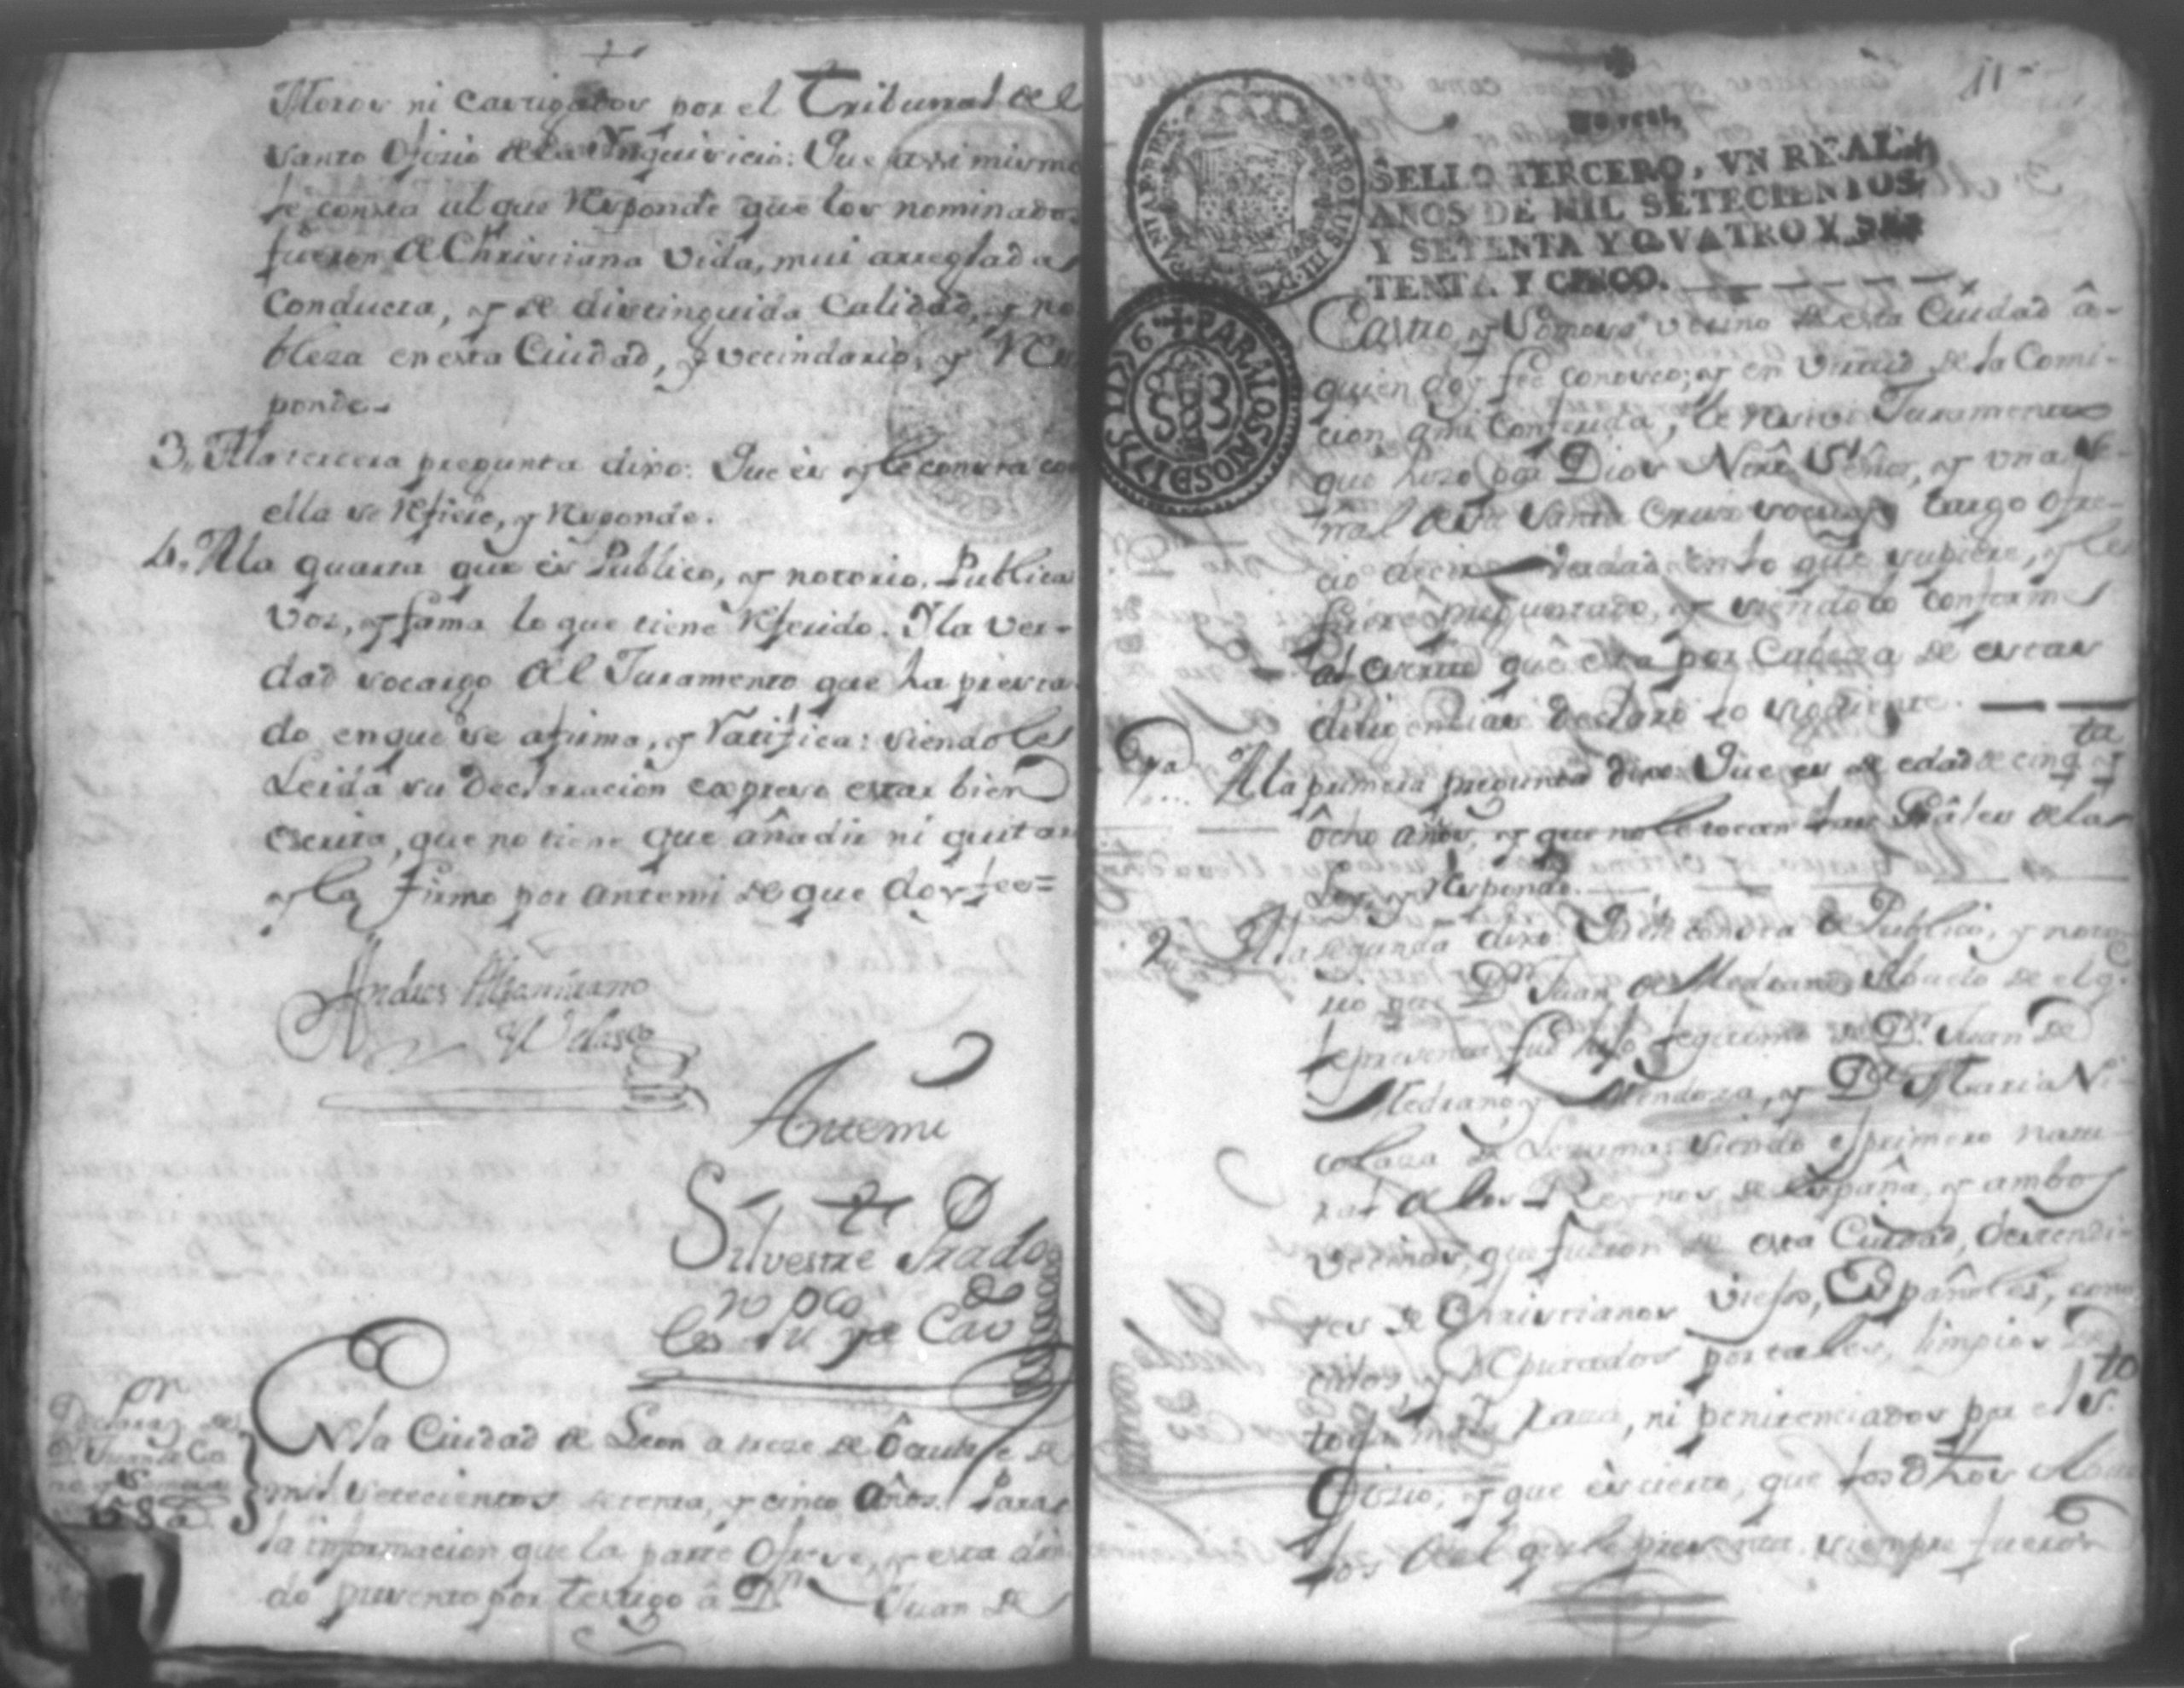 Moros ni castigados por el Tribunal del
Santo Ofizio dela Ynquisicio: Que assi mismo
le consta al que Responde que los nominados
fueron de Christiana vida, mui arreglada
Conducta, y de distinguida Calidad, y no
bleza en esta Ciudad, y vecindario, y Res
ponde.
3. Ala tercera pregunta dixo: Que es y le consta
ella se Refiere, y Responde.
4. Ala quarta que es Publico, y notorio, Publica
Voz, y fama lo que tiene Referido. Y la ver-
dad socargo del Juramento que ha presta
do en que se afirma, y Ratifica: siendole
Leida su Declaracion expreso estar bien
escrita, que no tiene que añadir ni quitar
y la firmo por antemi de que doy fee=
Andres
Velasco
Antemi
Silvestre Prado
En la Ciudad de Leon a treze de Octubre de
mil setecientos setenta, y cinco Años. Para
la informacion que la parte Ofreze, y esta dan
do presento por testigo â Dn. Juan de
11
SELLO TERCERO, VN REAL,
AÑOS DE MIL SETECIENTOS
Y SETENTA Y QVATRO Y SE-
TENTA Y CINCO.
CAROLUS III
PARA LOS AÑOS DE 1775 Y 1776
Castro, y vecino de esta Ciudad â-
quien doy fee conosco; y en Virtud de la Comi-
cion ami Conferida, le Resivi Juramento
que hizo por Dios Ntrô Señor, y una se-
ñal de la Santa Cruz socuyo cargo ofre-
cio decir verdad en lo que supiere, y le
fuere preguntado, y siendolo conforme
al escrito que esta por Cabeza de estas
diligencias Declaró lo siguiente.
Ala primera pregunta dixo: Que es de edad de cinqta y
ôcho años, y que no le tocan las Grâles delas
Ley, y Responde.
2 Ala segunda dixo: Publico, y noto-
rio que Dn. Juan de Medrano Abuelo de el q.
le presenta, fue hijo legitimo de Dn. Juan de
Medrano, y Mendoza, y Da. Maria Ni-
colaza de Lezama: siendo el primero natu-
ral delos Reynos de España, y ambos
vecinos, que fueron de esta Ciudad, descendi-
tes de Christianos viejos, Españoles, cono
cidos, y Reputados por tales, limpios de
toda mala Raza, ni penitenciados por el Sto
Ofizio; y que es cierto, que los dhos Abue
los del que le presenta siempre fueron